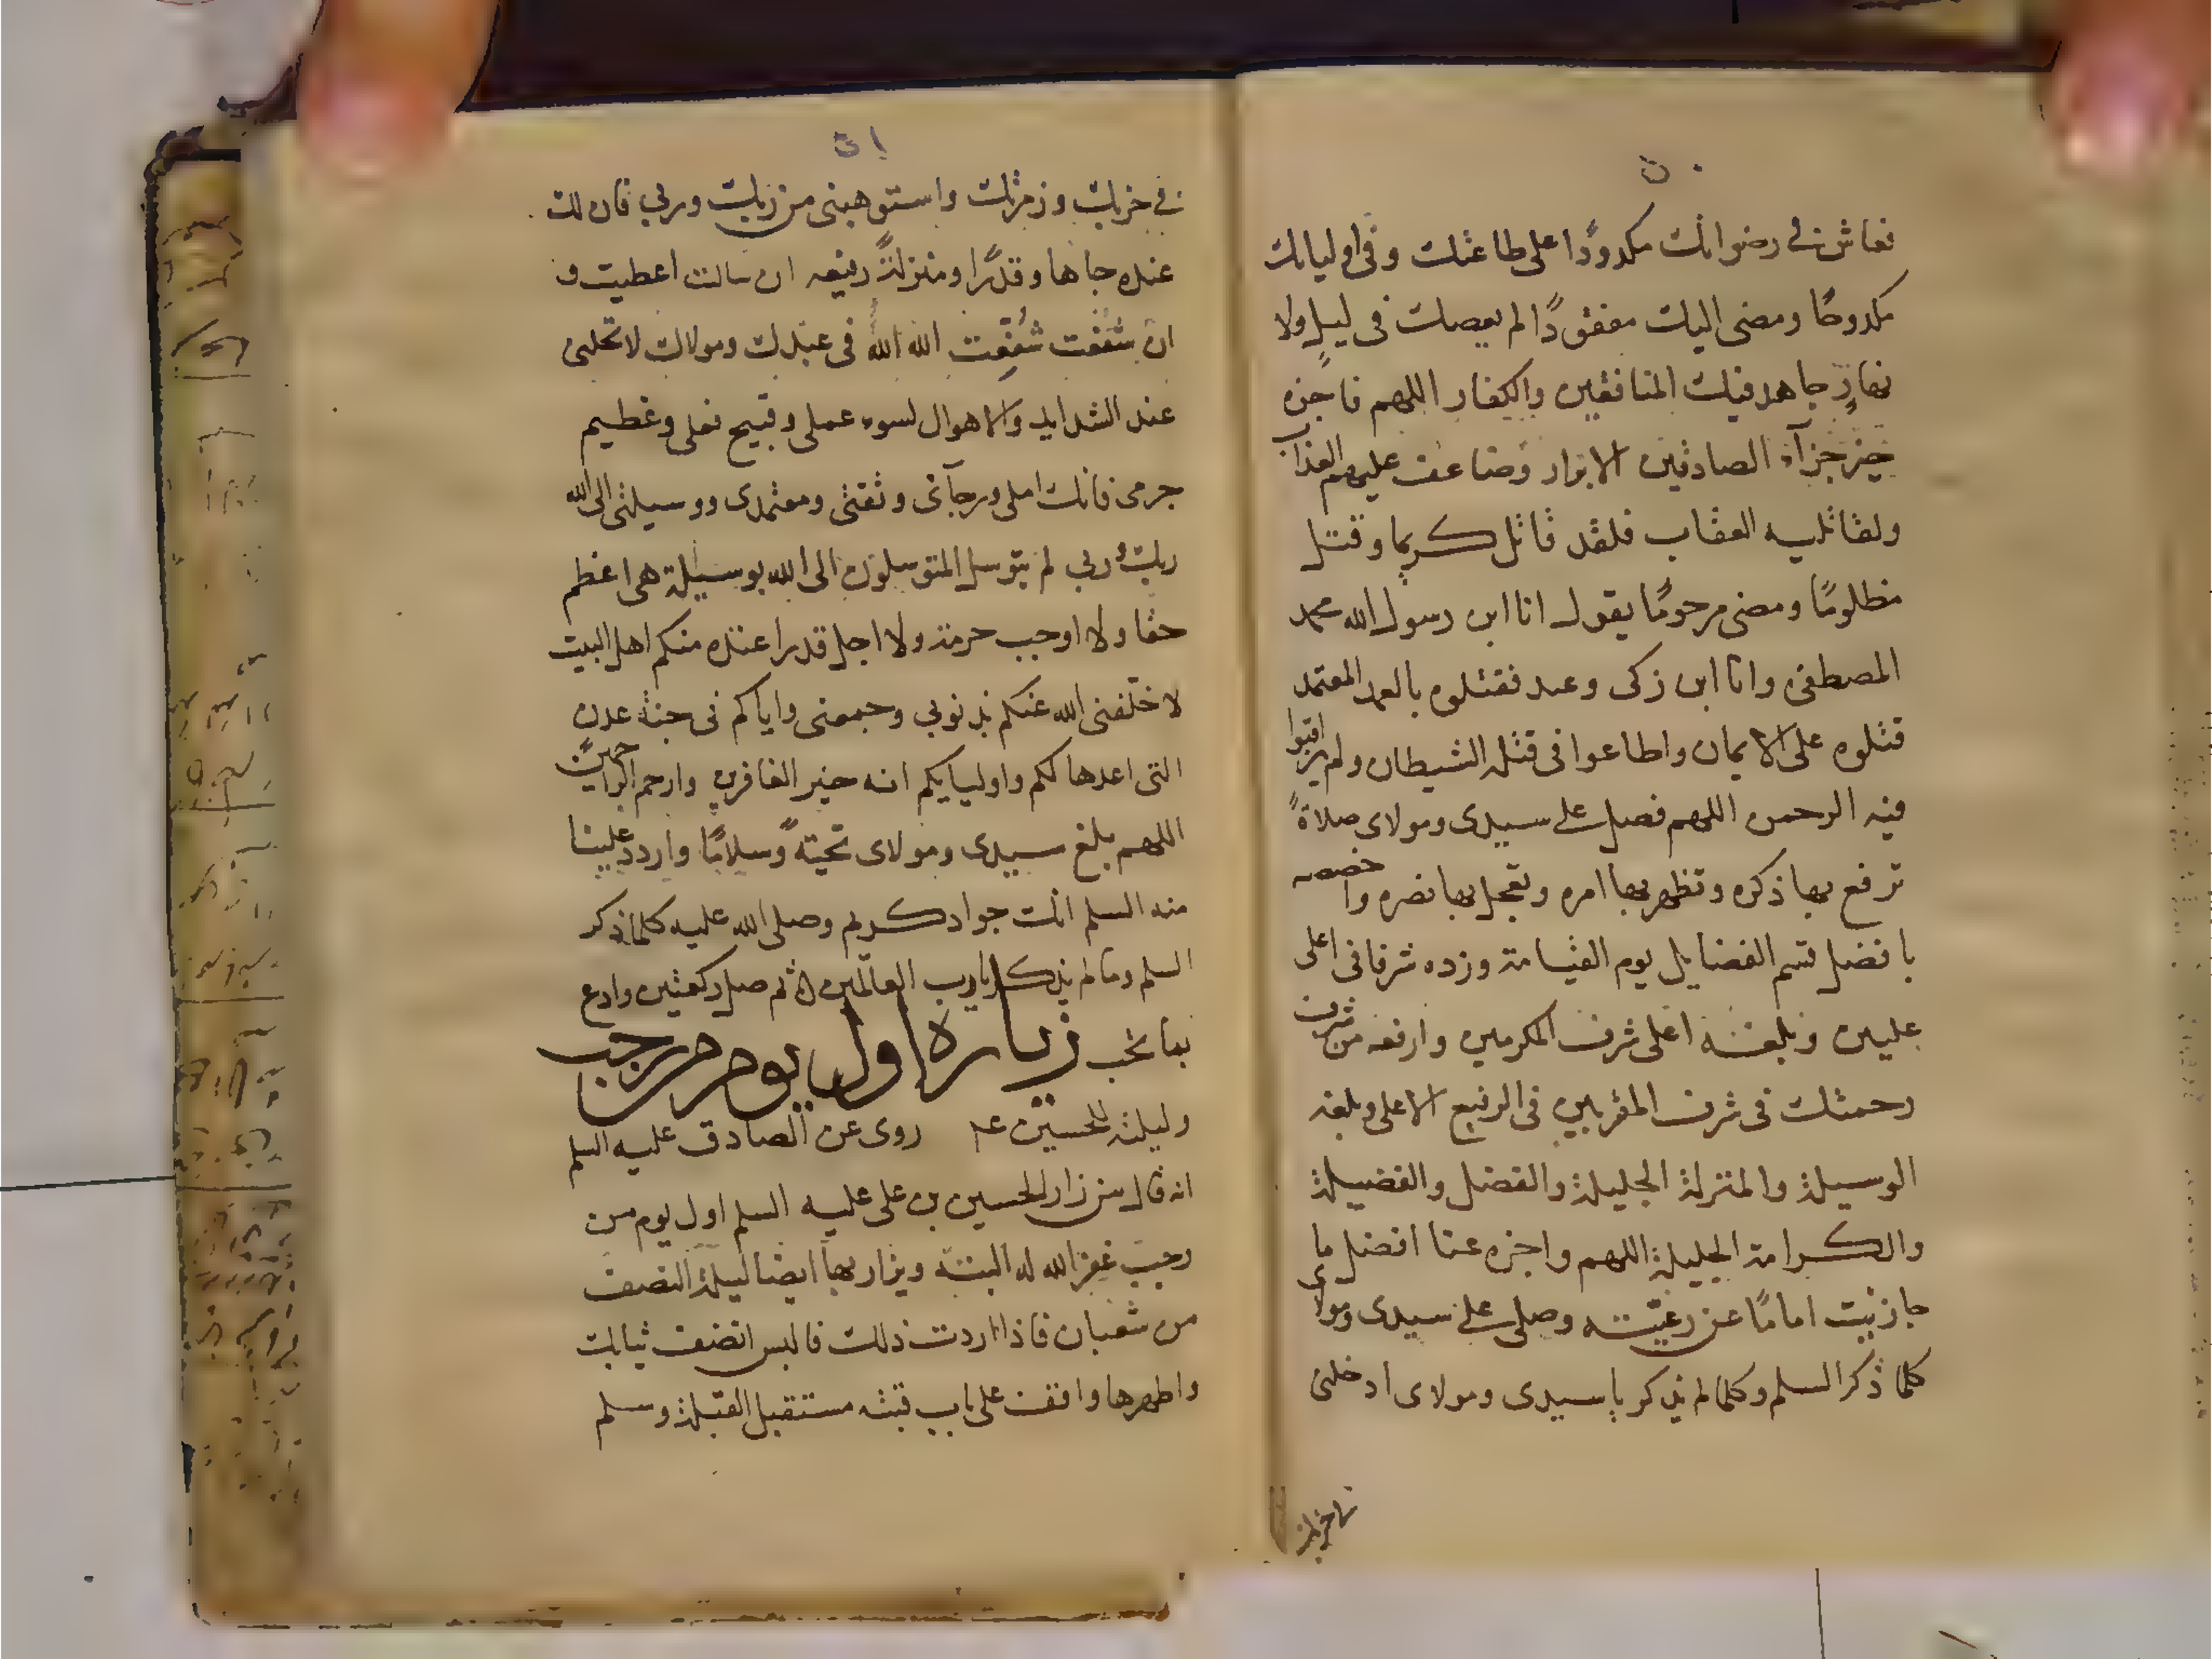 ٥٠
فعاش في رضوانك مكدودًا على طاعتك وفي اوليائك
مكدوحًا ومضى اليك مفقودًا لم يعصك في ليل ولا
نهارٍ جاهد فيك المنافقين والكفار اللهم فاجزه
خير جزآء الصادقين الابرار وضاعف عليهم العذاب
ولقاتليه العقاب فلقد قاتل كريما وقتل
مظلومًا ومضى مرحومًا يقول انا ابن رسول الله محمد
المصطفى وانا ابن زكى وعبد فقتلوه بالعمد المعتمد
قتلوه على الايمان واطاعوا فى قتله الشيطان ولم يراقبوا
فيه الرحمن اللهم فصل على سيدى ومولاى صلاةً
ترفع بها ذكره وتظهر بها امره وتعجل بها نصره واخصصه
بافضل قسم الفضايل يوم القيامة وزده شرفا فى اعلى
عليين وبلغه اعلى شرف المكرمين وارفعه من شرف
رحمتك فى شرف المقربين فى الرفيع الاعلى وبلغه
الوسيلة والمنزلة الجليلة والفضل والفضيلة
والكرامة الجليلة اللهم واجزه عنا افضل ما
جازيت امامًا عن رعيته وصلى على سيدى ومولاى
كلما ذكر السلم وكلما لم يذكر يا سيدى ومولاى ادخلنى
٥١
في حزبك وزمرتك واستوهبنى من ربك وربى فان لك
عنده جاها وقدرًا ومنزلةً رفيعه ان سالت اعطيت و
ان شفعت شُفِّعت الله الله فى عبدك ومولاك لا تخلنى
عند الشدايد والاهوال لسوء عملى وقبيح فعلى وعظيم
جرمى فانك املى ورجآئى وثقتى ومعتمدى ووسيلتى الى الله
ربك وربى لم يتوسل المتوسلون الى الله بوسيلة هى اعظم
حقا ولا اوجب حرمة ولا اجل قدرا عنده منكم اهل البيت
لا خلفنى الله عنكم بذنوبى وجمعنى واياكم فى جنة عدن
التى اعدها لكم واوليايكم انه خير الغافرين وارحم الراحمين
اللهم بلغ سيدى ومولاى تحيّةً وسلامًا واردد علينا
منه السلم انك جواد كريم وصلى الله عليه كلما ذكر
السلم وما لم يذكر يا رب العالمين ثم صل ركعتين وادع
بما تحب زيارة اول يوم من رجب
وليلته للحسين عم روى عن الصادق عليه السلم
انه قال من زار الحسين بن على عليه السلم اول يوم من
رجب غفر الله له البتة ويزار بها ايضا ليلة النصف
من شعبان فاذا اردت ذلك فالبس انضف ثيابك
واطهرها واقف على باب قبته مستقبل القبلة وسلم